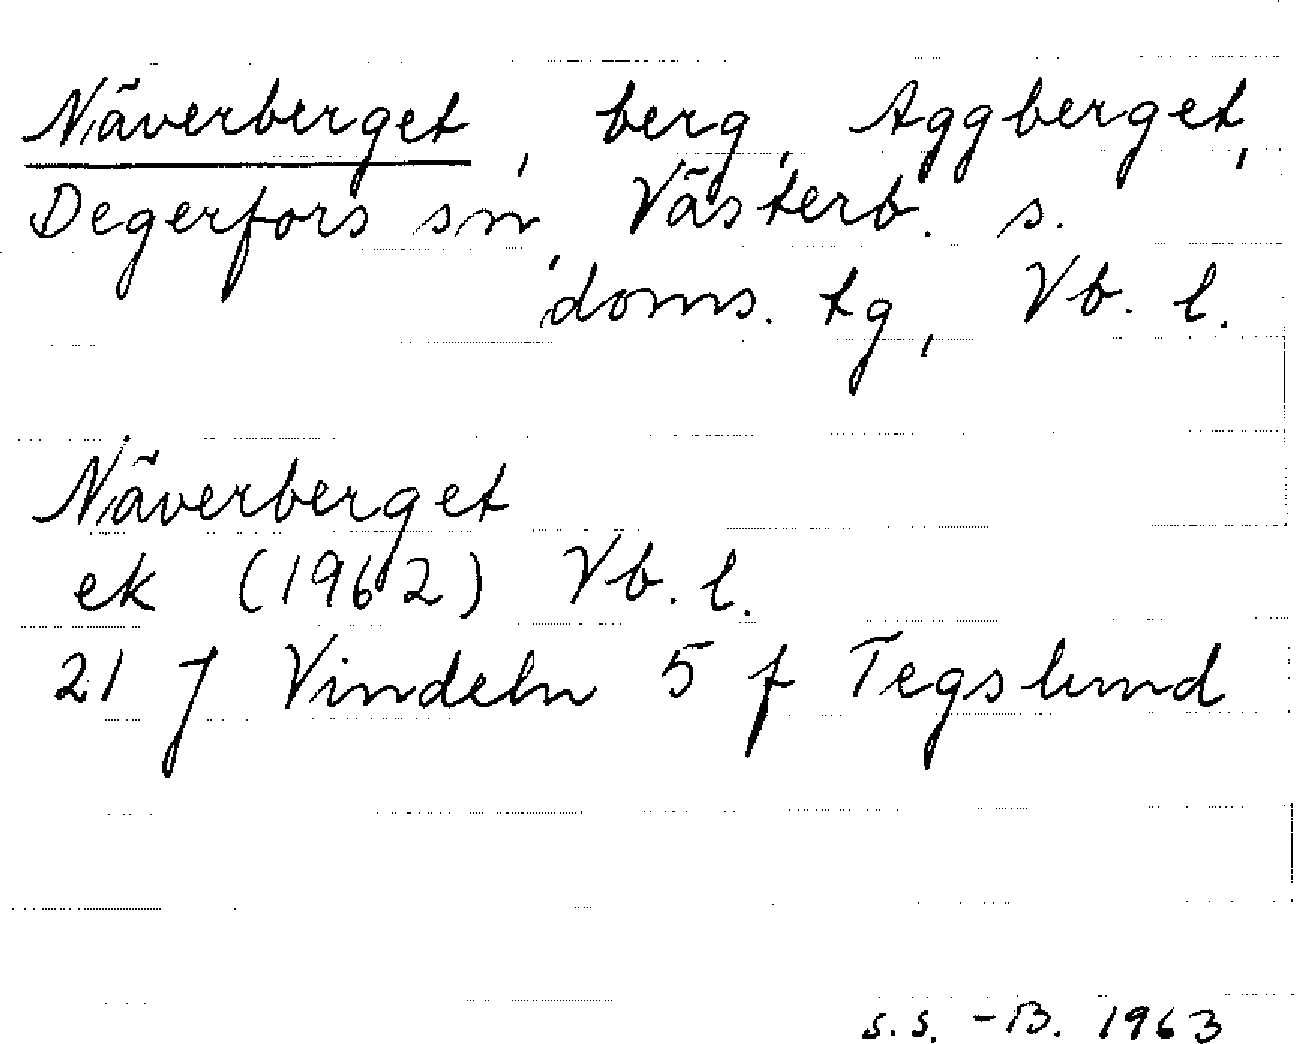 Näverberget, berg, Aggberget,
Degerfors sn, Västerb. s.
doms. tg, Vb. l.
Näverberget
ek (1962) Vb. l.
21 J Vindeln 5 f Tegslund
s.s. -B. 1963